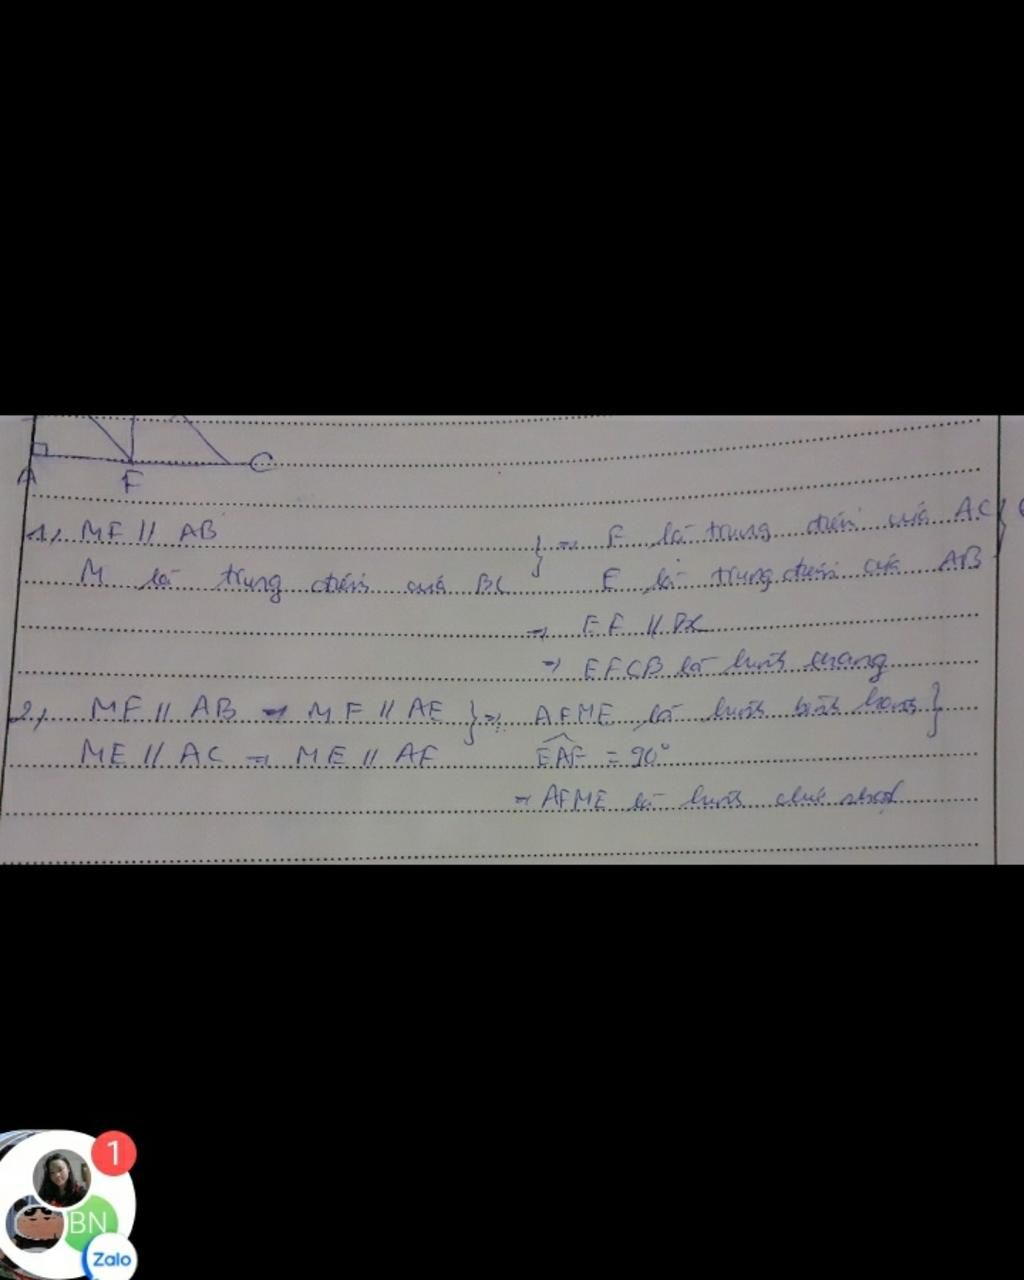 A F C
1, MF // AB } => F là trung điểm của AC }
M là trung điểm của BC E là trung điểm của AB
=> EF // BC
=> EFCB là hình thang
2, MF // AB => MF // AE } => AFME là hình bình hành }
ME // AC => ME // AF EAF = 90°
=> AFME là hình chữ nhật
1
BN
Zalo